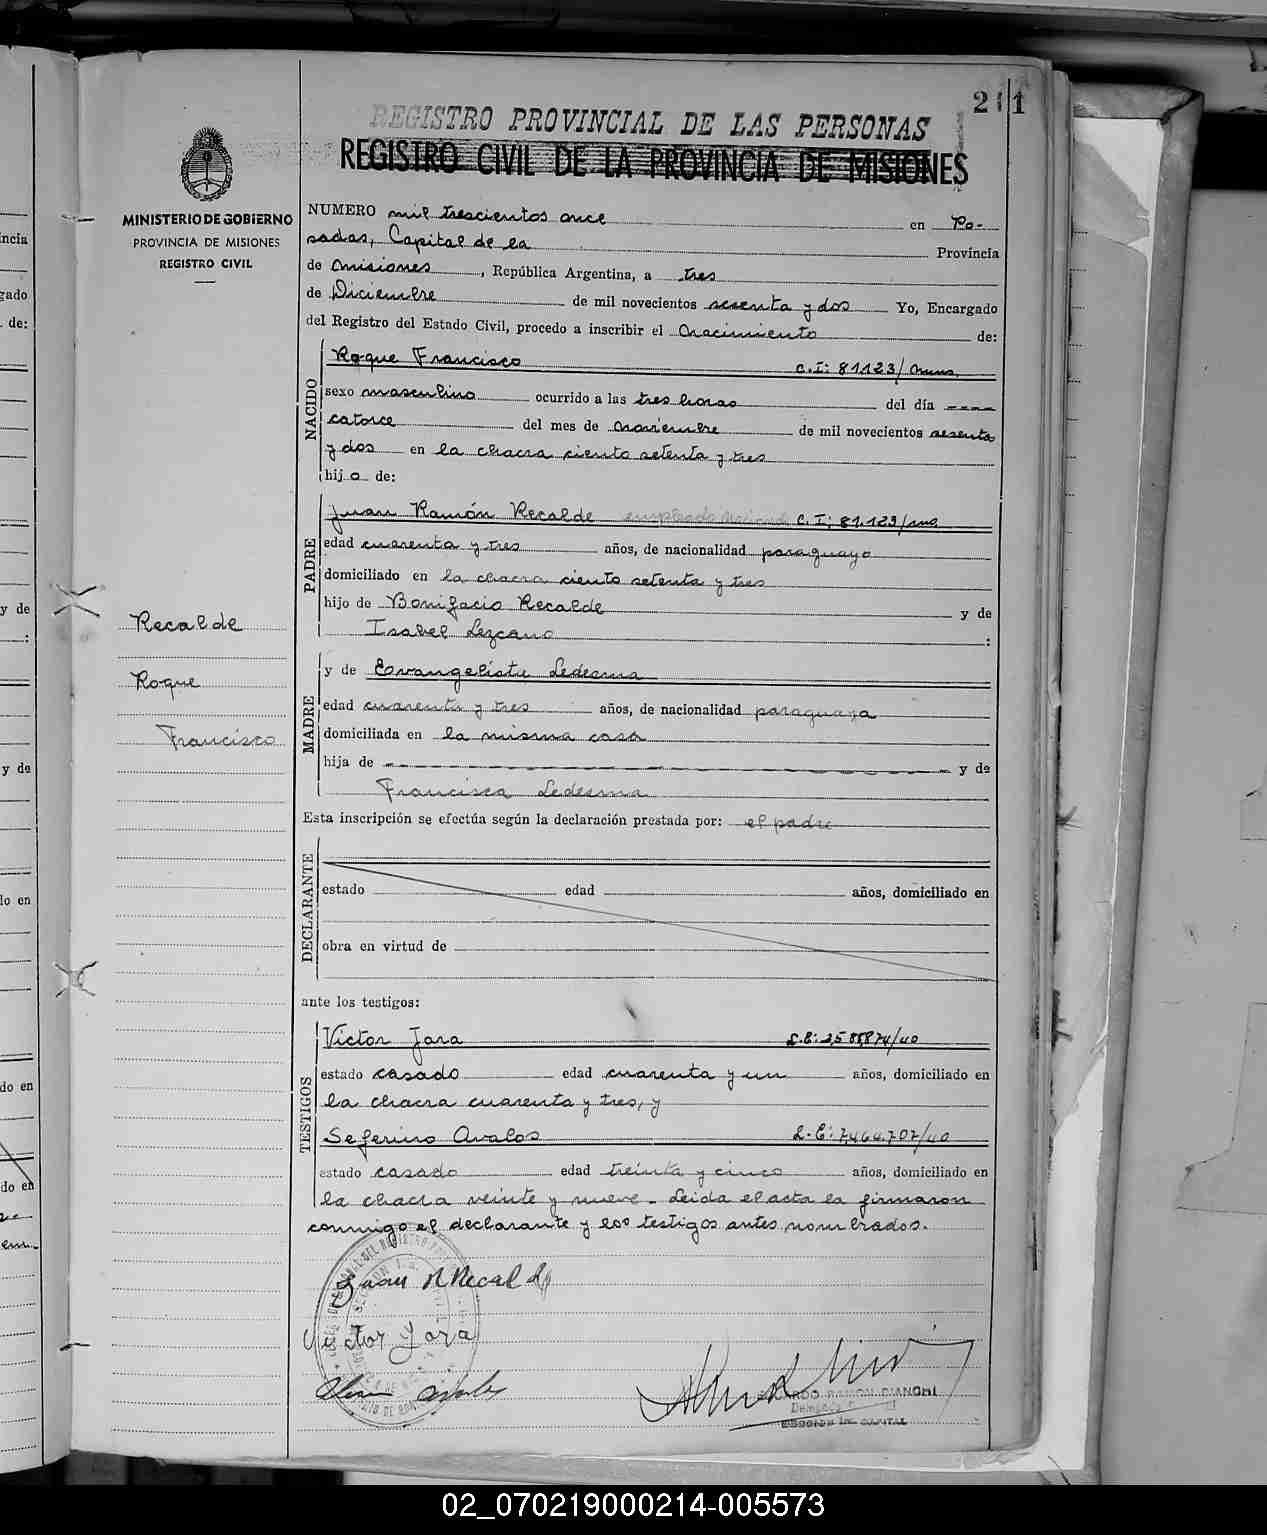 2 1
REGISTRO PROVINCIAL DE LAS PERSONAS
REGISTRO CIVIL DE LA PROVINCIA DE MISIONES
MINISTERIO DE GOBIERNO
PROVINCIA DE MISIONES
REGISTRO CIVIL
NUMERO mil trescientos once en Po-
sadas, Capital de la Provincia
de Misiones, República Argentina, a tres
de Diciembre de mil novecientos sesenta y dos Yo, Encargado
del Registro del Estado Civil, procedo a inscribir el nacimiento de:
NACIDO
Roque Francisco C.I: 81123/mnes.
sexo masculino ocurrido a las tres horas del día ----
catorce del mes de noviembre de mil novecientos sesenta
y dos en la chacra ciento setenta y tres
hijo de:
PADRE
Juan Ramón Recalde C.I: 81.123/mnes
edad cuarenta y tres años, de nacionalidad paraguayo
domiciliado en la chacra ciento setenta y tres
hijo de Bonifacio Recalde y de
Isabel Lezcano :
Recalde
Roque
Francisco
MADRE
y de Evangelista Ledesma
edad cuarenta y tres años, de nacionalidad paraguaya
domiciliada en la misma casa
hija de - - - - - y de
Francisca Ledesma
Esta inscripción se efectúa según la declaración prestada por: el padre
DECLARANTE
estado edad años, domiciliado en
obra en virtud de
ante los testigos:
TESTIGOS
Victor Jara
estado casado edad cuarenta y un años, domiciliado en
la chacra cuarenta y tres, y
Seferino Avalos L.E: 7.464.707/40
estado casado edad treinta y cinco años, domiciliado en
la chacra veinte y nueve - Leida el acta la firmaron
conmigo el declarante y los testigos antes nombrados.
Juan R Recalde
Victor Jara
RAMON BIANCHI
02_070219000214-005573